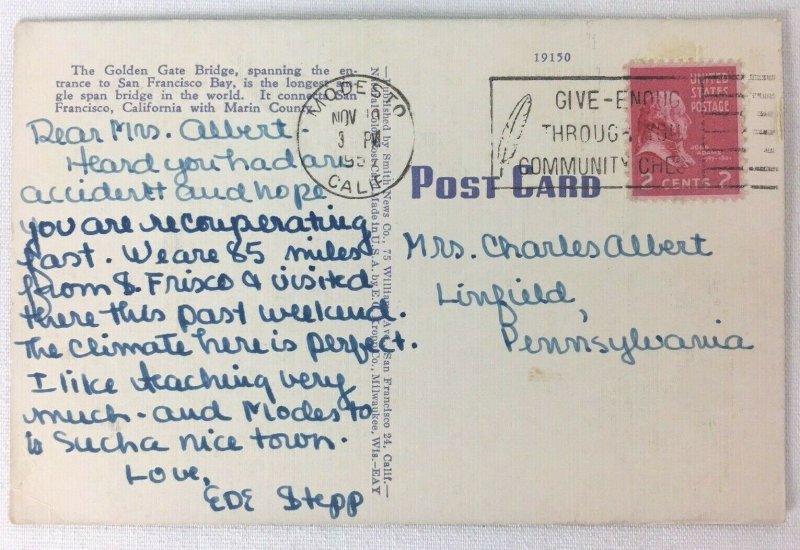 The Golden Gate Bridge, spanning the en-
trance to San Francisco Bay, is the longest
gle span bridge in the world. It connects San
Francisco, California with Marin County.
Dear Mrs. Albert.
Heard you had an
accident and hope
you are recouperating
fast. We are 85 miles
from S. Frisco & visited
there this past weekend.
The climate here is perfect.
I like teaching very
much - and Modesto
is such a nice town.
Love,
EDE Stepp
—Published by Smith News Co., 75 William Ave., San Francisco 24, Calif.—
Made in U. S. A. by E. C. Kropp Co., Milwaukee, Wis.—EAY
19150
MODESTO
NOV
3 PM
CALIF
GIVE-ENOUG
THROUG
COMMUNITY CHES
UNITED
STATES
POSTAGE
JOHN
ADAMS
2 CENTS 2
POST CARD
Mrs. Charles Albert
Linfield,
Pennsylvania